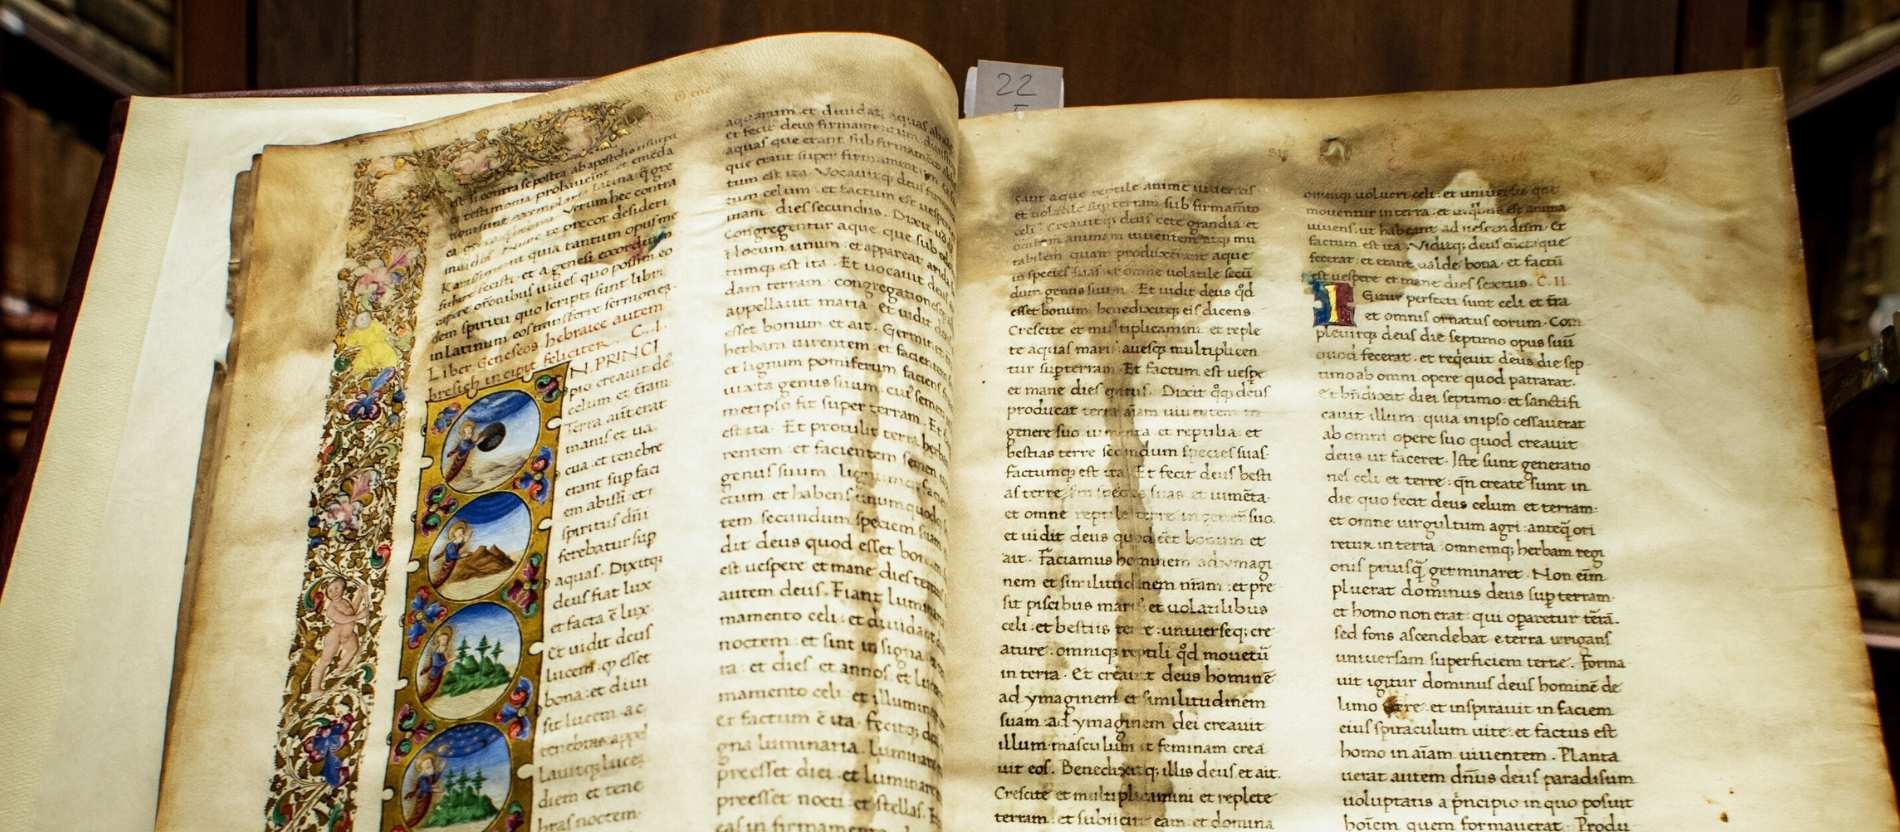 22
est si contra se postea ab apostolis usurpa
ta testimonia probaverit et emēda
tiora sint exemplaria latina q̄ gre
ca greca q̄ hebrea. Verum hec contra
invidos. Nunc te precor desideri
Karissime ut quia tantum opus me
subire fecisti et a genesi exordium
capere orōnibus iuves quo possim eo
dem spiritu quo scripti sunt libri
in latinum eos transferre sermonem.
Liber Geneseos hebraice autem
bresith incipit feliciter. C. I.
N PRINCI
pio creavit de
celum et terram.
Terra aūt erat
inanis et va
cua et tenebre
erant sup faci
em abissi et
spiritus dn̄i
ferebatur sup
aquas. Dixitq;
deus fiat lux
et facta ē lux.
Et vidit deus
lucem q̄ esset
bona et divi
sit lucem ac
tenebras appel
lavitq; lucez
diem et tene
bras noctem.
aquarum et dividat aquas ab
et fecit deus firmamentum. divisitq;
aquas que erant sub firmamēto
que erant super firmamentum
tum est ita. Vocavitq; deus firmamē
tum celum et factum est vespere
mane dies secundus. Dixit vō
Congregentur aque que sub celo
i locum unum et appareat arida
tumq; est ita. Et vocavit deus
dam terram. congregationes
appellavit maria. et vidit deus
esset bonum et ait. Germinet
herbam virentem et facientem
et lignum pomiferum faciens
iuxta genus suum. cui⁹ semen
metipso sit super terram. Et
est ita. Et protulit terra herbam
rentem et facientem semen
genus suum. lignumq; faciens
ctum et habens unumquodq;
tem secundum speciem suam
dit deus quod esset bonum
est vespere et mane dies tertius
autem deus. Fiant luminaria
mamento celi et dividant
noctem. et sint in signa
ra et dies et annos. et luceant
mamento celi et illuminent
et factum ē ita. fecitq; deus
gna luminaria. Luminare
preesset diei et luminare
preesset nocti et stellas. Et
eas in firmamento
cant aque reptile anime viventis
et volatile sup terram sub firmam̄to
celi. Creavitq; deus cete grandia et
omnem animam viventem atq; mu
tabilem quam produxerant aque
in species suas et omne volatile secū
dum genus suum. Et vidit deus q̄d
esset bonum benedixitq; eis dicens
Crescite et multiplicamini et reple
te aquas maris avesq; multiplicen
tur sup terram. Et factum est vespe
et mane dies quitus. Dixit q̄q; deus
producat terra aīam viventem in
genere suo iumenta et reptilia et
bestias terre secundum species suas
factumq; est ita. Et fecit deus besti
as terre iux species suas et iumēta
et omne reptile terre in genere suo.
et vidit deus quod eēt bonum et
ait. Faciamus hominem ad ymagi
nem et similitudinem nr̄am et pre
sit piscibus maris et volatilibus
celi et bestiis terre universeq; cre
ature omniq; reptili q̄d movetū
in terra. Et creavit deus hominē
ad ymaginem et similitudinem
suam ad ymaginem dei creavit
illum masculum et feminam crea
vit eos. Benedixitq; illis deus et ait.
Crescite et multiplicamini et replete
terram et subiicite eam et domina
omniq; volucri celi et universis que
moventur in terra et in quibus est anima
vivens ut habeant ad vescendum et
factum est ita. Viditq; deus cūcta que
fecerat et erant valde bona et factū
est vespere et mane dies sextus. C. II.
Igitur perfecti sunt celi et t̄ra
et omnis ornatus eorum. Com
plevitq; deus die septimo opus suū
quod fecerat. et reqevit deus die sep
timo ab omni opere quod patrarat.
et bn̄dixit diei septimo et sanctifi
cavit illum quia in ipso cessaverat
ab omni opere suo quod creavit
deus ut faceret. Iste sunt generatio
nes celi et terre. qn̄ create sunt in
die quo fecit deus celum et terram
et omne virgultum agri anteq̄ ori
retur in terra omnemq; herbam regi
onis priusq̄ germinaret. Non eīm
pluerat dominus deus sup terram
et homo non erat qui opāretur terā.
sed fons ascendebat e terra irrigans
universam superficiem terre. Forma
vit igitur dominus deus hominē de
limo terre et inspiravit in faciem
eius spiraculum vite et factus est
homo in aīam viventem. Planta
verat autem dn̄us deus paradisum
voluptatis a p̄ncipio in quo posuit
hoīem quem formaverat. Produ